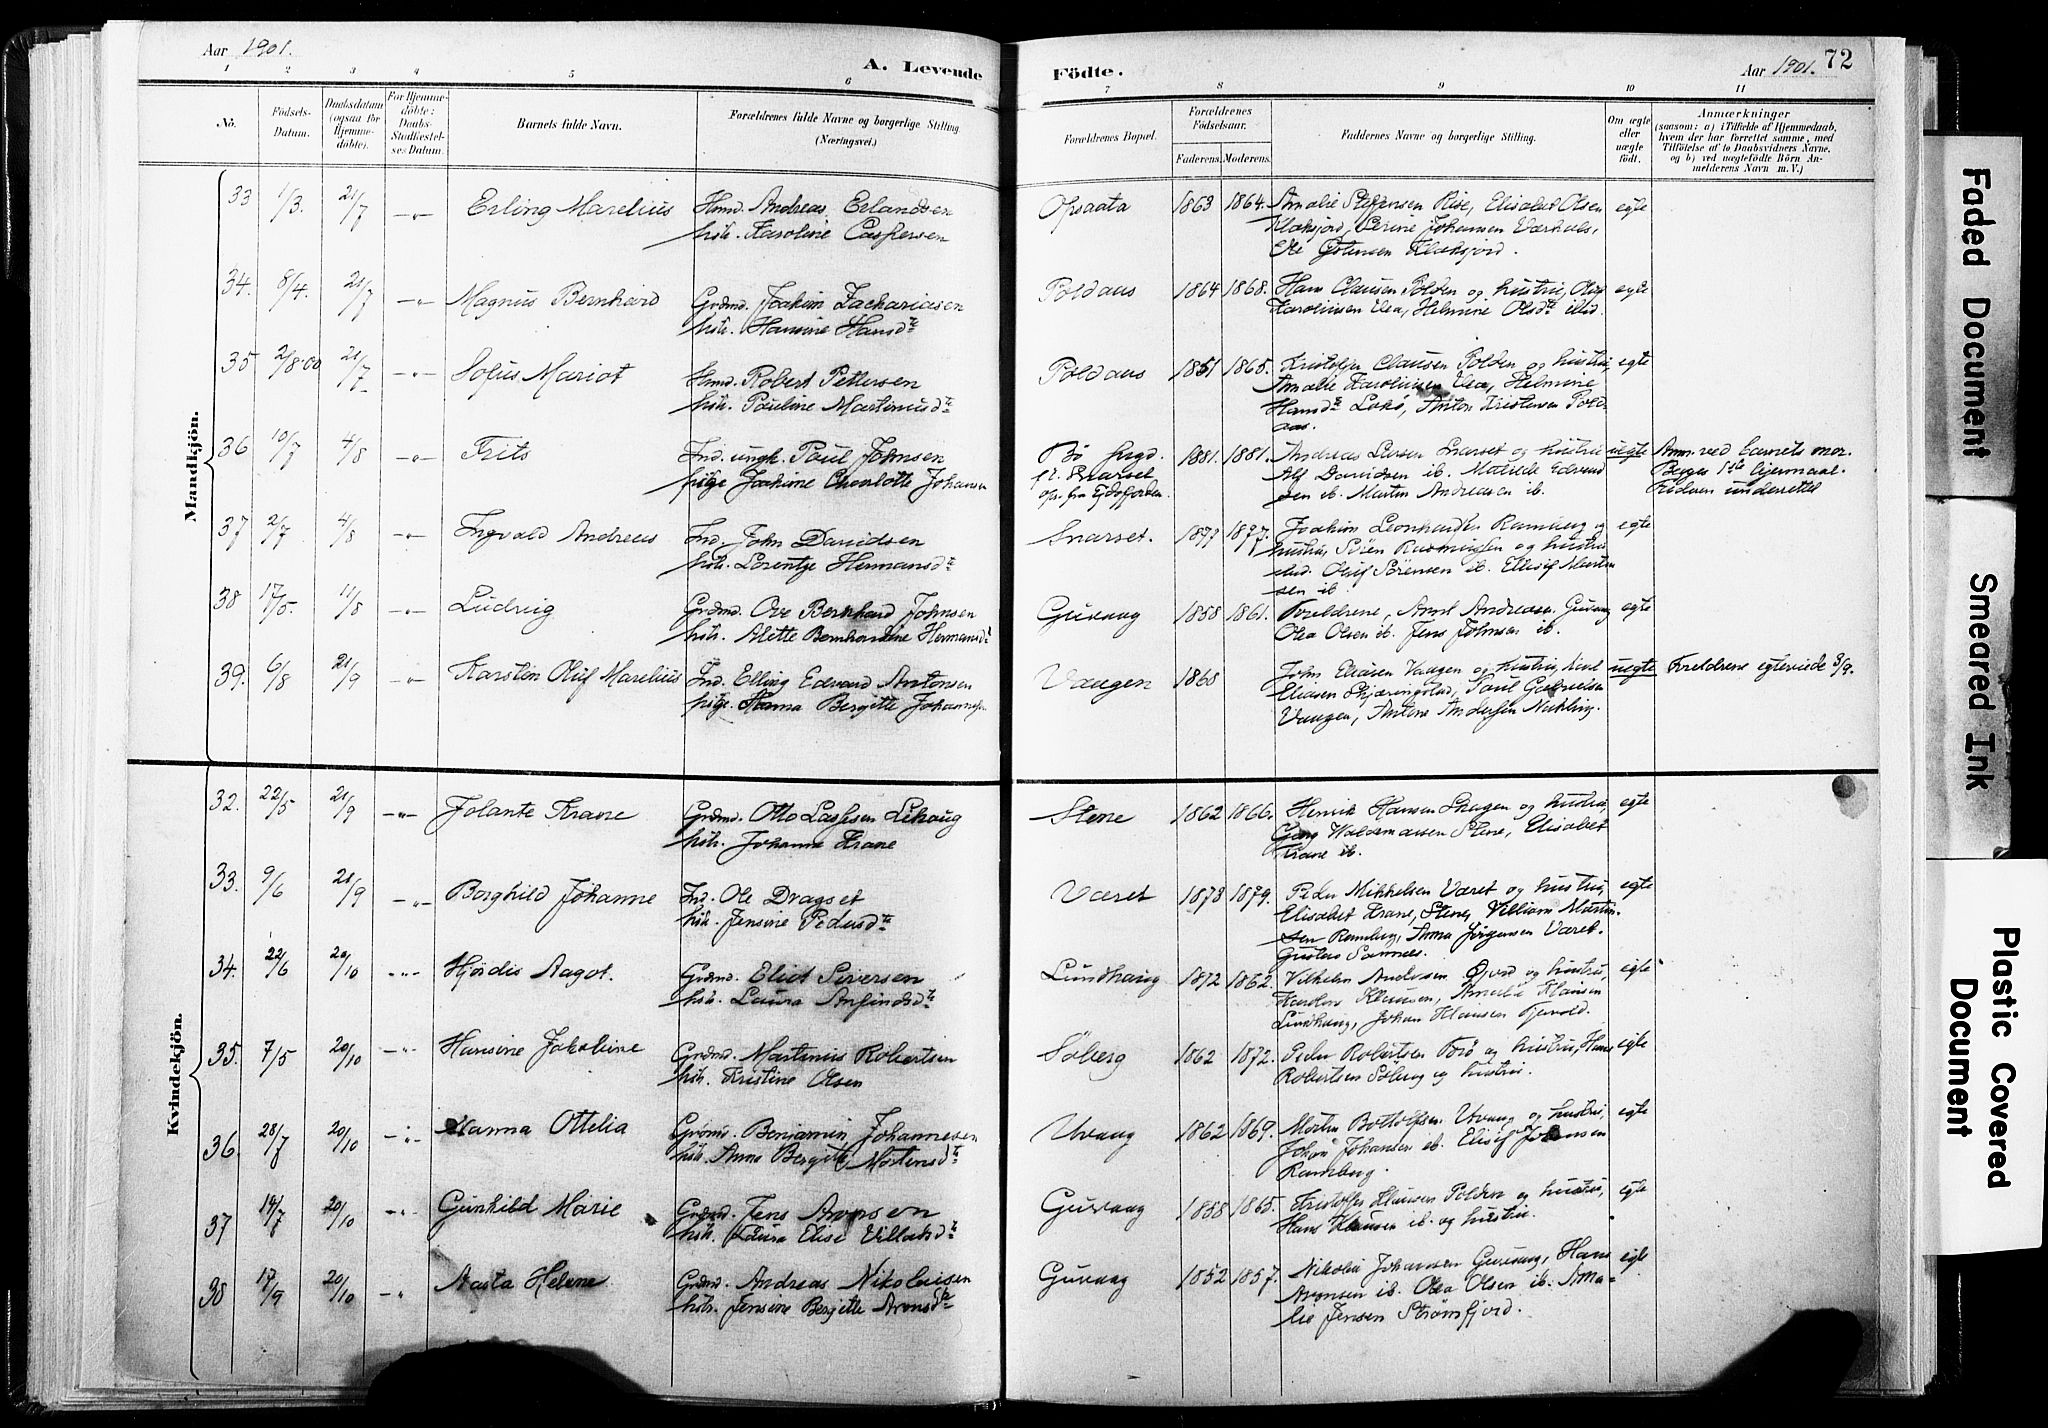 Aar 1901.
A. Levende
Födte.
Aar 1901. 72
1 2 3 4 5 6 7 8 9 10 11
No.
Födsels-
Datum.
Daabsdatum
(ogsaa for
Hjemme-
döbte).
For Hjemme-
döbte:
Daabs-
Stadfæstel-
ses Datum.
Barnets fulde Navn.
Forældrenes fulde Navne og borgerlige Stilling
(Næringsvei.)
Forældrenes Bopæl.
Forældrenes
Födselsaar.
Faderens. Moderens.
Faddernes Navne og borgerlige Stilling.
Om ægte
eller
uægte
født.
Anmærkninger
(saasom: a) i Tilfælde af Hjemmedaab,
hvem der har forrettet samme, med
Tilföielse af to Daabsvidners Navne,
og b) ved uægtefödte Börn An-
melderens Navn m. V.)
Mandkjön.
33 1/3. 21/7 -"- Erling Marelius
Hmd. Andreas Erlandsen
hstr. Karoline Caspersen
Opsaata 1863 1864.
Amalie Steffensen Rise, Elisabet Olsen
Klaksjord, Johansen
Ole Klaksjord.
egte
34. 8/4. 21/7 -"- Magnus Bernhard
Grdmd. Joakim Zachariasen
hstr. Hansine Hansdtr
Poldaas 1864 1868.
Hans Clausen Polden og hustru, Olaf
Karoliussen Vea, Helmine Olsdtr ibid.
egte
35 2/8.00 21/7 -"- Sofus Mariot
Hmd. Robert Pettersen
hstr. Pauline Martinusdtr
Poldaas 1851 1865.
Kristoffer Clausen Polden og hustru,
Amalie Karoliussen Vea, Helmine
Hansdtr Lokø, Anton Kristensen Pold-
aas.
egte
36 10/7 4/8 -"- Frits
Ind. ungk. Paul Johnsen
pige Jakine Charlotte Johansen
Bø
f. Snarset
op. fra Eidsfjorden
1881. 1881.
Andreas Larsen Snarset og hustru
Alf Davidsen ib. Matilde Edvard
sen ib. Martin Andreasen ib.
uegte
Anm. ved barnets mor.
Begges 1ste leiermaal.
Fideren underrettet
37 2/7 4/8 -"- Ingvald Andreas
Ind. John Davidsen
hstr. Lorentze Hermansdtr
Snarset. 1877 1877.
Joakim Leonhardsen Ramberg og
hustru, Sören Rasmussen og hustru
ibid. Oluf Sörensen ib. Ellisif Marten
sen ib.
egte
38 17/5. 11/8 -"- Ludvig
Grdmd. Ove Bernhard Johnsen
hstr. Alette Bernhardine Hermansdtr
Guvaag 1858 1861.
Foreldrene, Andreasen Guvaag
Olea Olsen ib. Jens Johnsen ib.
egte
39. 6/8 21/9 -"- Karsten Oluf Marelius
Ind. Elling Edvard Antonsen
pige. Hanna Bergitte Johannesen
Vaagen 1868
John Eliasen Vaagen og hustru,
Eliasen Skjæringstad, Paul Gabrielsen
Vaagen, Antone Andersen Nykling.
uegte
Foreldrene egteviede 3/9.
Kvindekjön.
32. 22/5 21/9 -"- Jolante Krane
Grdmd. Otto Lassesen Lehaug
hstr. Johanna Krane
Stene 1862 1866.
Henrik Hansen Skagen og hustru,
Georg Waldemarsen Stene, Elisabet
Krane ib.
egte
33. 9/6 21/9 -"- Borghild Johanne
Ind. Ole Dragset
hstr. Jensine Pedersdtr
Været 1878 1879.
Peder Mikkelsen Været og hustru,
Elisabet Krane, Stene, Villiam Martin-
sen Ramberg, Anna Jørgensen Været.
egte
34. 22/6 20/10 -"- Hjördis Aagot.
Grdmd. Eliot Siversen
hstr. Laura Arfindsdtr
Lundhaug 1872 1862.
Vilhelm Andersen og hustru,
Karoline Klausen, Amalie Klausen
Lundhaug, Johan Klausen
egte
35. 7/5 20/10 -"- Hansine Jakobine
Grdmd. Martinus Robertsen
hstr. Kristine Olsen
Söberg 1862 1872.
Peder Robertsen og hustru, Hans
Robertsen Söberg og hustru.
egte
36. 28/7 20/10 -"- Hanna Ottelia
Grdmd. Benjamin Johannesen
hstr. Anna Bergitte Mortensdtr
Uvaag 1862 1869.
Morten Bottolfsen Uvaag og hustru,
Johan Johansen ib. Elisif Johansen
Ramberg.
egte
37 14/7 20/10 -"- Gunhild Marie
Grdmd. Jens Aronsen
hstr. Laura Elise Villadsdtr
Guvaag 1858 1865.
Kristoffer Klausen Polden og hustru,
Hans Klausen ib. og hustru.
egte
38 17/9 20/10 -"- Aasta Helene
Grdmd. Andreas Nikolaisen
hstr. Jensine Bergitte Aronsdtr
Guvaag 1852 1857.
Nikolai Johansen Guvaag, Hans
Aronsen ib. Olea Olsen ib. Ama-
lie Jensen Strømfjord.
egte
Faded Document
Smeared Ink
Plastic Covered
Document